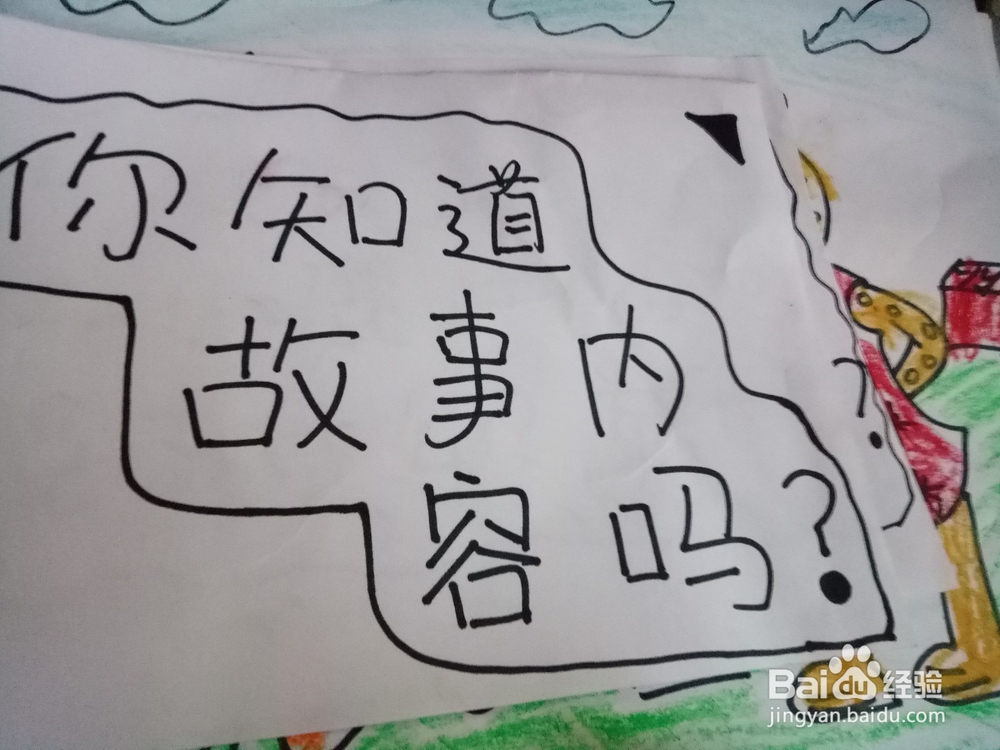 你知道
故事内
容吗?
?
Baidu经验
jingyan.baidu.com